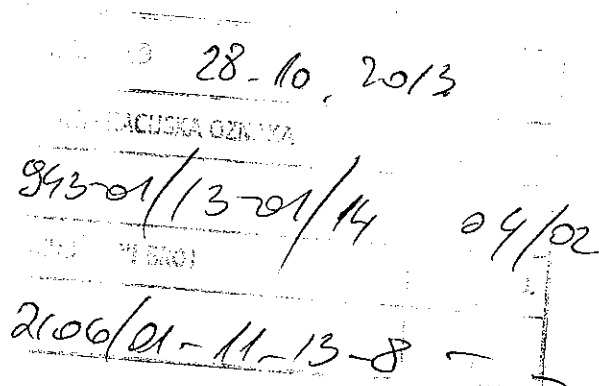 28-10. 2013
OZNAKA
943-01/13-01/14 04/02
BROJ
2106/01-11-13-8 -